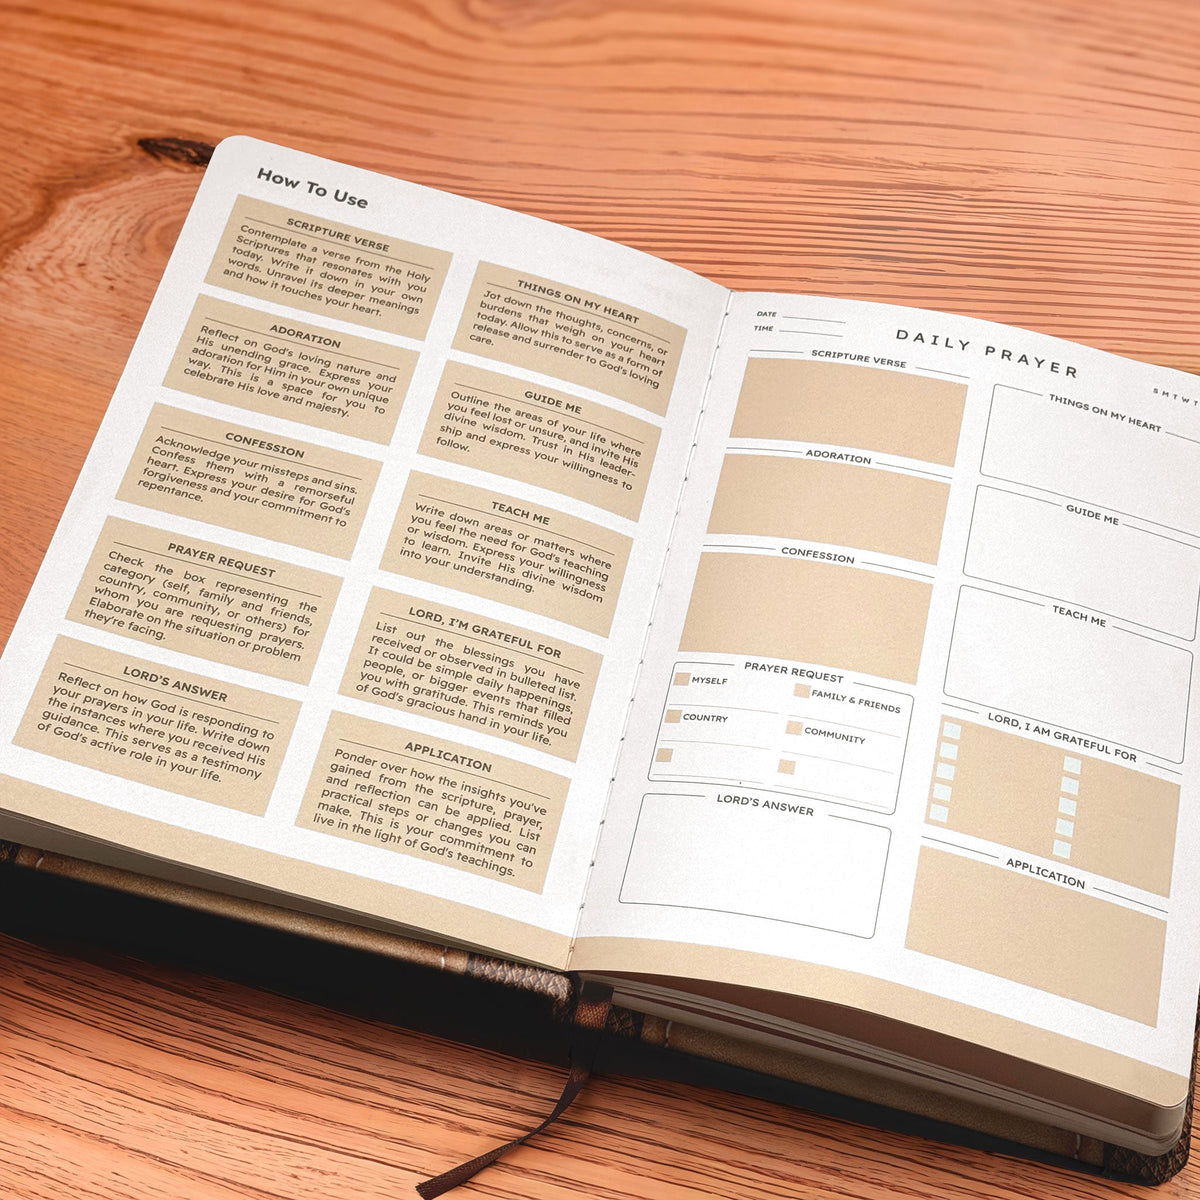 How To Use
SCRIPTURE VERSE
Contemplate a verse from the Holy
Scriptures that resonates with you
today. Write it down in your own
words. Unravel its deeper meanings
and how it touches your heart.
ADORATION
Reflect on God's loving nature and
His unending grace. Express your
adoration for Him in your own unique
way. This is a space for you to
celebrate His love and majesty.
CONFESSION
Acknowledge your missteps and sins.
Confess them with a remorseful
heart. Express your desire for God's
forgiveness and your commitment to
repentance.
PRAYER REQUEST
Check the box representing the
category (self, family and friends,
country, community, or others) for
whom you are requesting prayers.
Elaborate on the situation or problem
they're facing.
LORD'S ANSWER
Reflect on how God is responding to
your prayers in your life. Write down
the instances where you received His
guidance. This serves as a testimony
of God's active role in your life.
THINGS ON MY HEART
Jot down the thoughts, concerns, or
burdens that weigh on your heart
today. Allow this to serve as a form of
release and surrender to God's loving
care.
GUIDE ME
Outline the areas of your life where
you feel lost or unsure, and invite His
divine wisdom. Trust in His leader-
ship and express your willingness to
follow.
TEACH ME
Write down areas or matters where
you feel the need for God's teaching
or wisdom. Express your willingness
to learn. Invite His divine wisdom
into your understanding.
LORD, I'M GRATEFUL FOR
List out the blessings you have
received or observed in bulleted list.
It could be simple daily happenings,
people, or bigger events that filled
you with gratitude. This reminds you
of God's gracious hand in your life.
APPLICATION
Ponder over how the insights you've
gained from the scripture, prayer,
and reflection can be applied. List
practical steps or changes you can
make. This is your commitment to
live in the light of God's teachings.
DATE
TIME
DAILY PRAYER
S M T W T
SCRIPTURE VERSE
ADORATION
CONFESSION
PRAYER REQUEST
MYSELF
FAMILY & FRIENDS
COUNTRY
COMMUNITY
LORD'S ANSWER
THINGS ON MY HEART
GUIDE ME
TEACH ME
LORD, I AM GRATEFUL FOR
APPLICATION